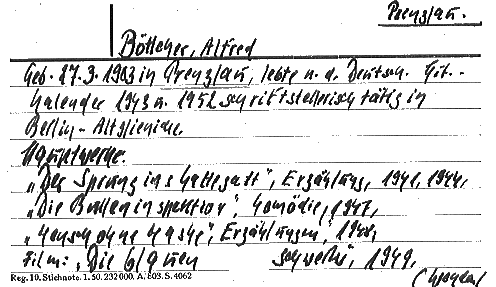 Prenzlau.
Böttcher, Alfred
Geb. 27.3.1903 in Prenzlau, lebte n. d. Deutsch. Lit.-
Kalender 1943 u. 1952 schriftstellerisch tätig in
Berlin-Altglienicke.
Hauptwerke:
"Der Sprung ins Kattegatt", Erzählung, 1941, 1944,
"Die Bulleninspektion", Komödie, 1947,
"Mensch ohne Maske", Erzählungen, 1948,
Film: "Die blauen Schwerter", 1949.
Reg. 10. Stichnote. 1. 50. 232000. A/803. S. 4062